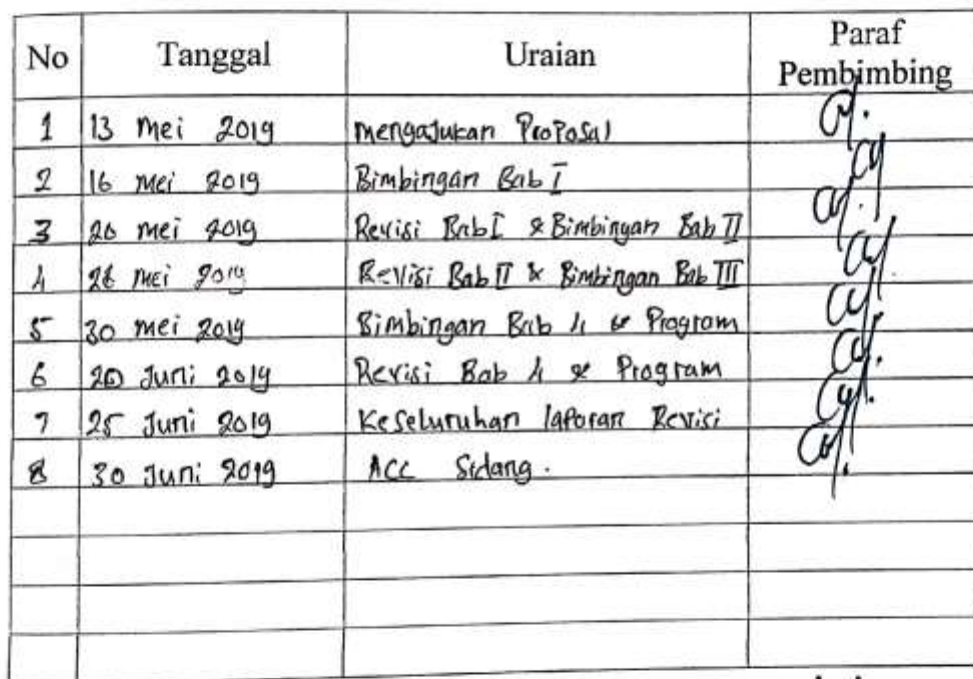 No Tanggal Uraian Paraf Pembimbing
1 13 Mei 2019 Mengajukan Proposal
2 16 Mei 2019 Bimbingan Bab I
3 20 Mei 2019 Revisi Bab I & Bimbingan Bab II
4 Mei 2019 Revisi Bab II & Bimbingan Bab III
5 30 Mei 2019 Bimbingan Bab 4 & Program
6 20 Juni 2019 Revisi Bab 4 & Program
7 25 Juni 2019 Keseluruhan laporan Revisi
8 30 Juni 2019 ACC Sidang.